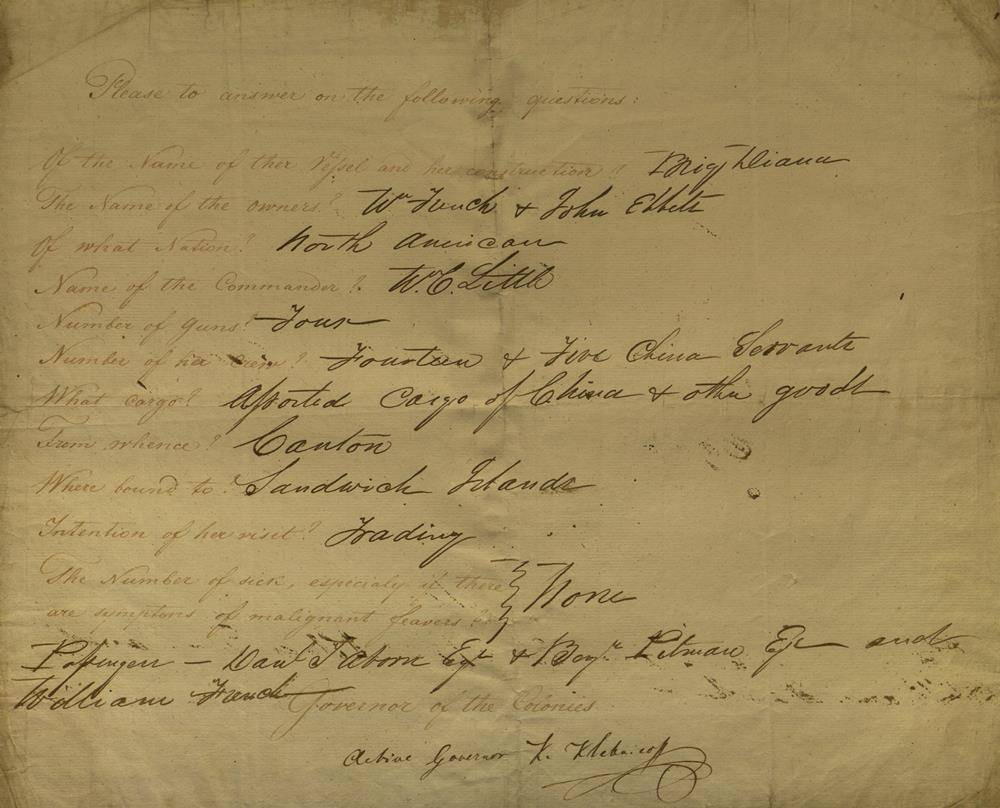 Please to answer on the following questions:
Of the Name of ther Vessel and her construction? Brig Diana
The Name of the owners? Wm French & John Ebbets
Of what Nation? North American
Name of the Commander? W. C. Little
Number of guns? Four
Number of her crew? Fourteen & Five China Servants
What cargo? Assorted Cargo of China & other goods
From whence? Canton
Where bound to? Sandwich Islands
Intention of her visit? Trading
The Number of sick, especialy if there
are symptons of malignant feavers? } None
Passengers – Danl Aborn Eqr & Benjn Pitman Eqr and
William French
Governor of the Colonies
Active Governor K. Klebnicoff